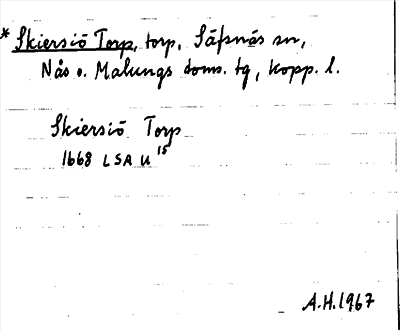 * Skiersiö Torp, torp, Säfsnäs sn,
Nås o. Malungs doms. tg, Kopp. l.
Skiersiö Torp
1668 LSA U 15
A.H. 1967